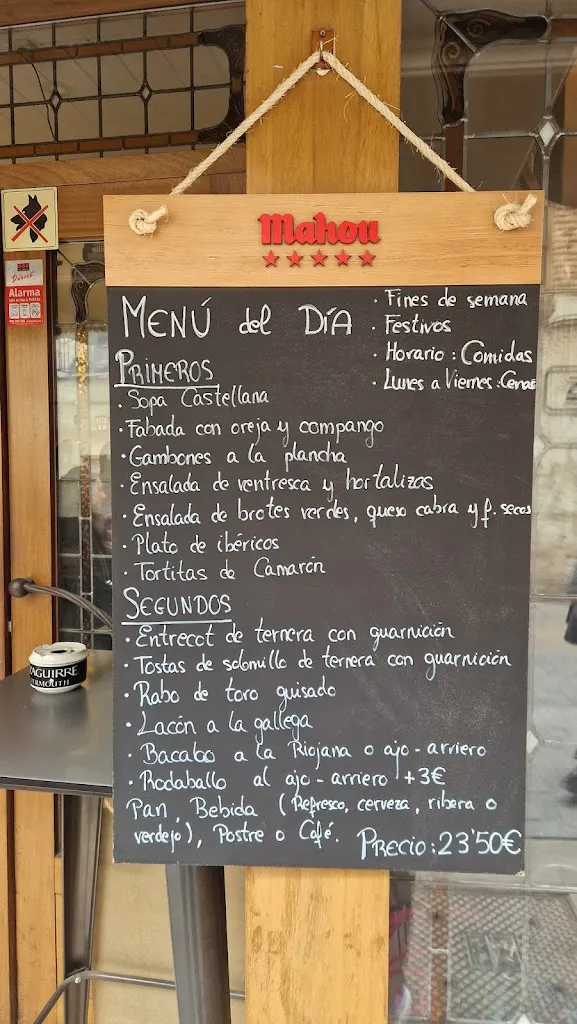 Mahou
MENÚ del DÍA
· Fines de semana
· Festivos
· Horario: Comidas
· Lunes a Viernes: Cenas
PRIMEROS
· Sopa Castellana
· Fabada con oreja y compango
· Gambones a la plancha
· Ensalada de ventresca y hortalizas
· Ensalada de brotes verdes, queso cabra y f. secos
· Plato de ibéricos
· Tortitas de Camarón
SEGUNDOS
· Entrecot de ternera con guarnición
· Tostas de solomillo de ternera con guarnición
· Rabo de toro guisado
· Lacón a la gallega
· Bacalao a la Riojana o ajo-arriero
· Rodaballo al ajo-arriero +3€
Pan, Bebida (Refresco, cerveza, ribera o
verdejo), Postre o Café. PRECIO: 23'50€
Alarma
ZAGUIRRE
VERMOUTH